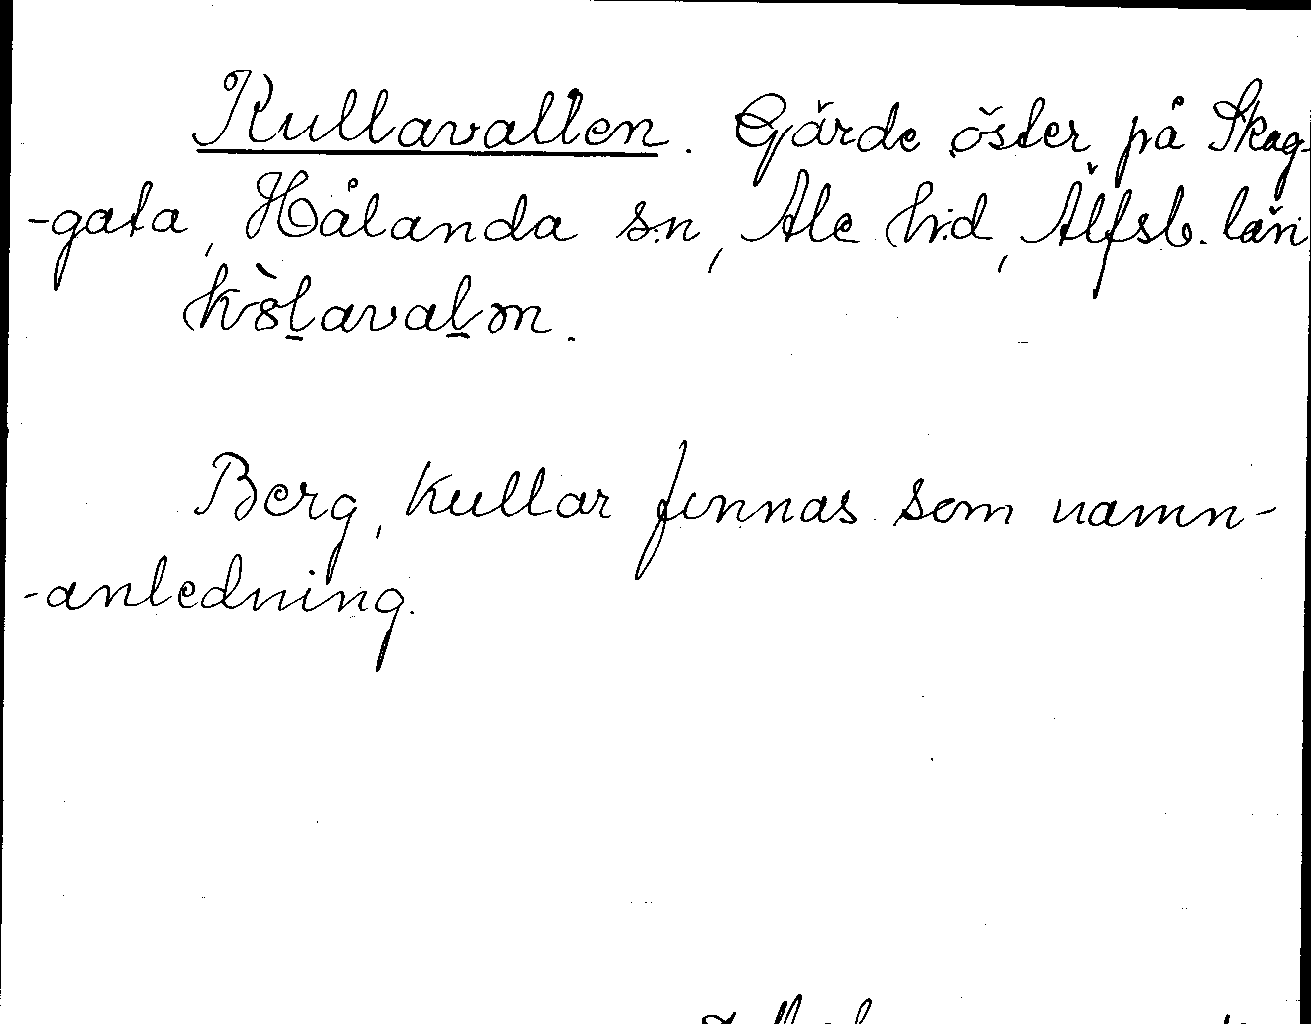 Kullavallen. Gärde öster på Skag-
-gata, Hålanda sn, Ale hd, Älfsb. län
Berg, kullar finnas som namn-
-anledning.